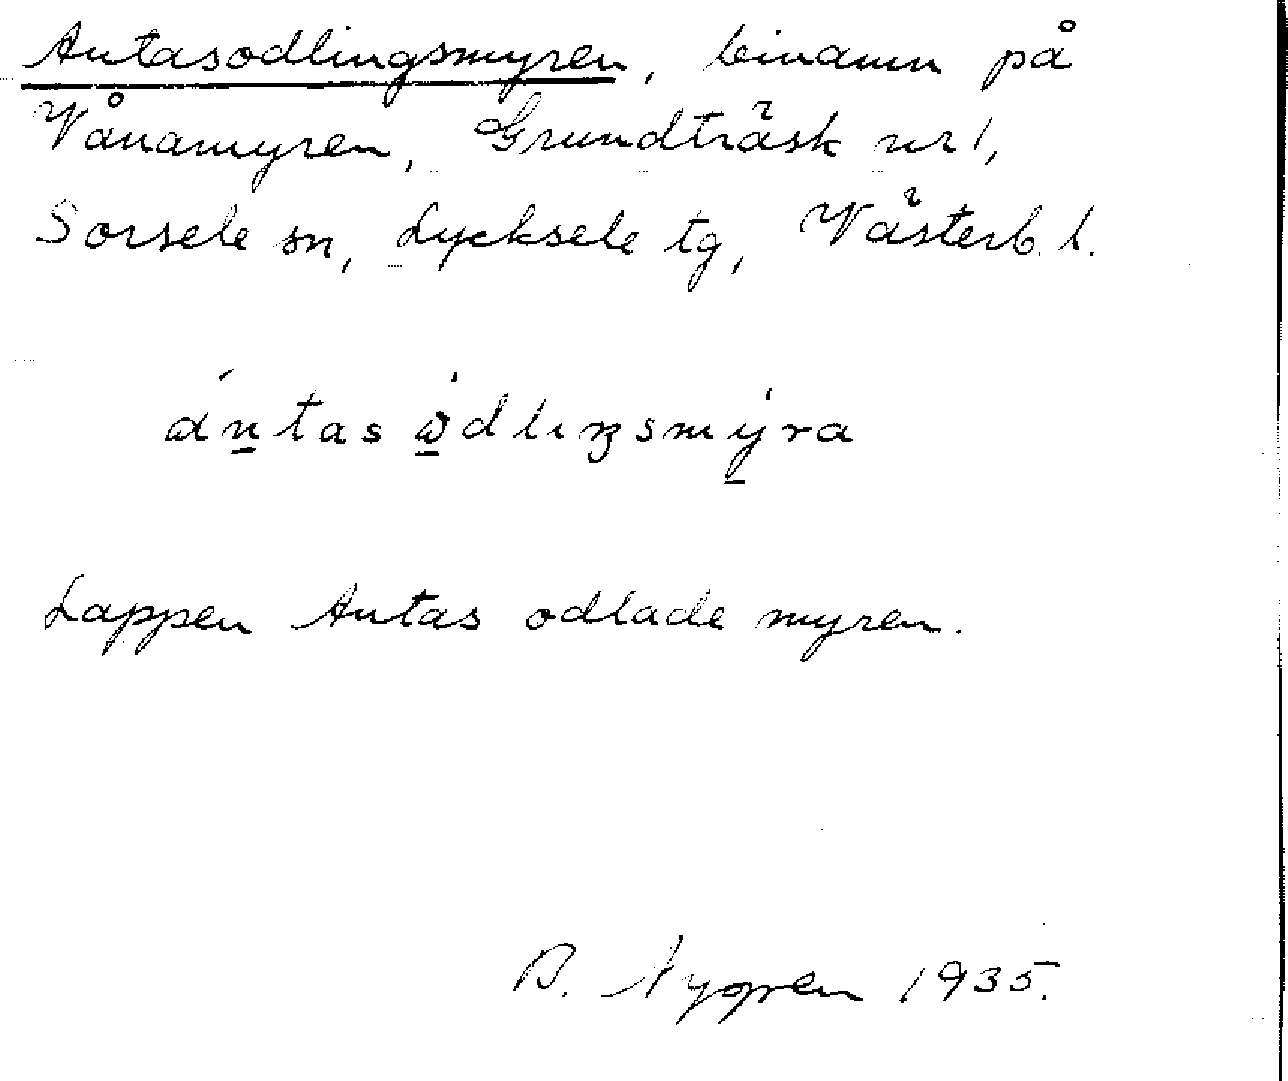 Antasodlingsmyren, binamn på
Vånamyren, Grundträsk nr 1,
Sorsele sn, Lycksele tg, Västerb. l.
Lappen Antas odlade myren.
B. Nygren 1935.